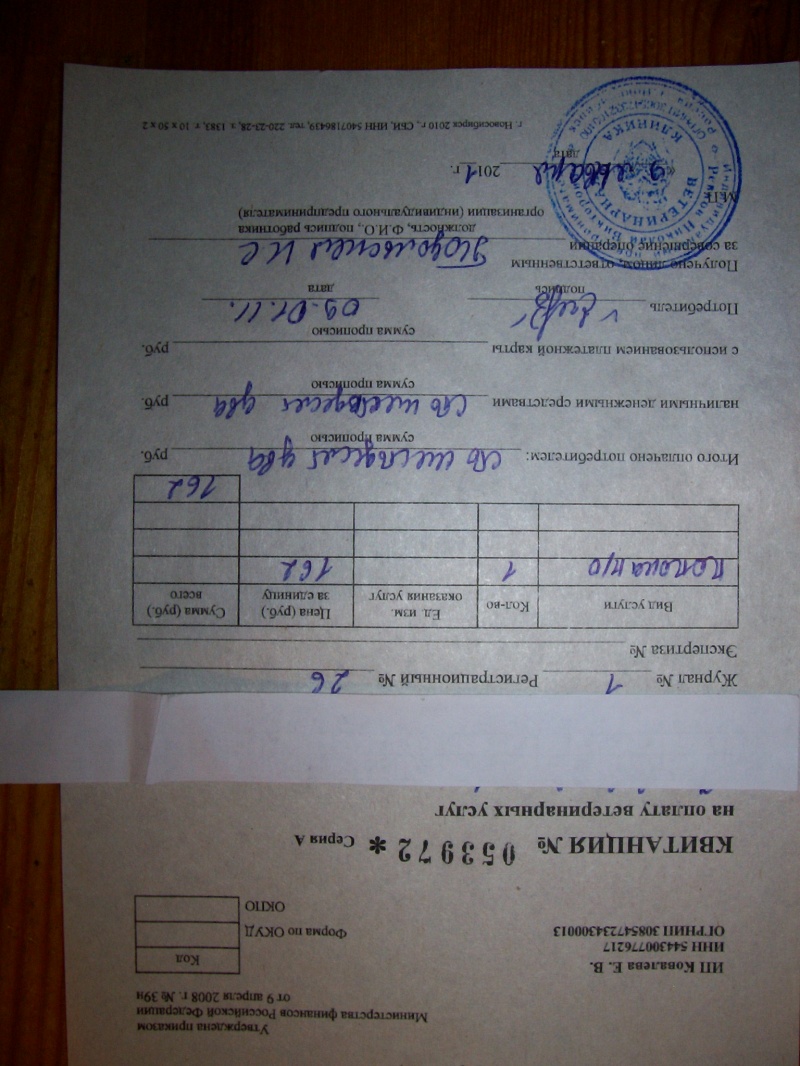 Утверждена приказом
Министерства финансов Российской Федерации
от 9 апреля 2008 г. № 39н
ИП Ковалева Е. В.
ИНН 544300776217
ОГРНИП 308547234300013
Код
Форма по ОКУД
ОКПО
КВИТАНЦИЯ № 053972 * Серия А
на оплату ветеринарных услуг
Журнал № 1 Регистрационный № 26
Экспертиза №
Вид услуги Кол-во Ед. изм. оказания услуг Цена (руб.) за единицу Сумма (руб.) всего
Попона п/о 1 162
162
Итого оплачено потребителем: Сто шестьдесят два руб.
сумма прописью
наличными денежными средствами Сто шестьдесят два руб.
сумма прописью
с использованием платежной карты руб.
сумма прописью
Потребитель 09.01.11.
подпись дата
Получено лицом, ответственным
за совершение операции
должность, Ф.И.О., подпись работника
организации (индивидуального предпринимателя)
М.П. 9 января 2011 г.
дата
ВЕТЕРИНАРНАЯ КЛИНИКА
г. Новосибирск 2010 г., СБИ, ИНН 5407186439, тел. 220-23-28, з. 1383, т. 10 х 50 х 2